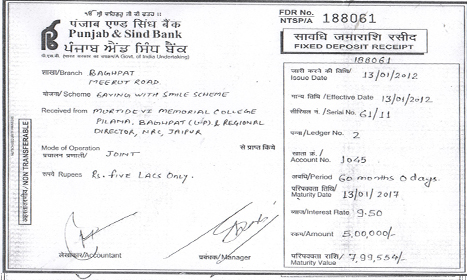 ਪੰਜਾਬ ਐਂਡ ਸਿੰਧ ਬੈਂਕ
Punjab & Sind Bank
पंजाब एण्ड सिंध बैंक
FDR No.
NTSP/A 188061
सावधि जमाराशि रसीद
FIXED DEPOSIT RECEIPT
188061
शाखा/Branch BAGHPAT
MEERUT ROAD.
योजना/Scheme SAVING WITH SMILE SCHEME
Received from MURTIDEVI MEMORIAL COLLEGE
PILANA, BAGHPAT (UP) & REGIONAL
DIRECTOR, NRC, JAIPUR
से प्राप्त किये
Mode of Operation
JOINT
रुपये Rupees Rs. FIVE LACS ONLY.
लेखाकार/Accountant
प्रबन्धक/Manager
अहस्तांतरणीय/NON TRANSFERABLE
जारी करने की तिथि/
Issue Date 13/01/2012
मान्य तिथि/Effective Date 13/01/2012
सीरियल नं./Serial No. 61/11
पन्ना/Ledger No. 2
खाता क्र./
Account No. 1045
अवधि/Period 60 months 0 days.
परिपक्वता तिथि/
Maturity Date 13/01/2017
ब्याज/Interest Rate 9.50
रकम/Amount 5,00,000/-
परिपक्वता राशि/
Maturity Value 7,99,554/-